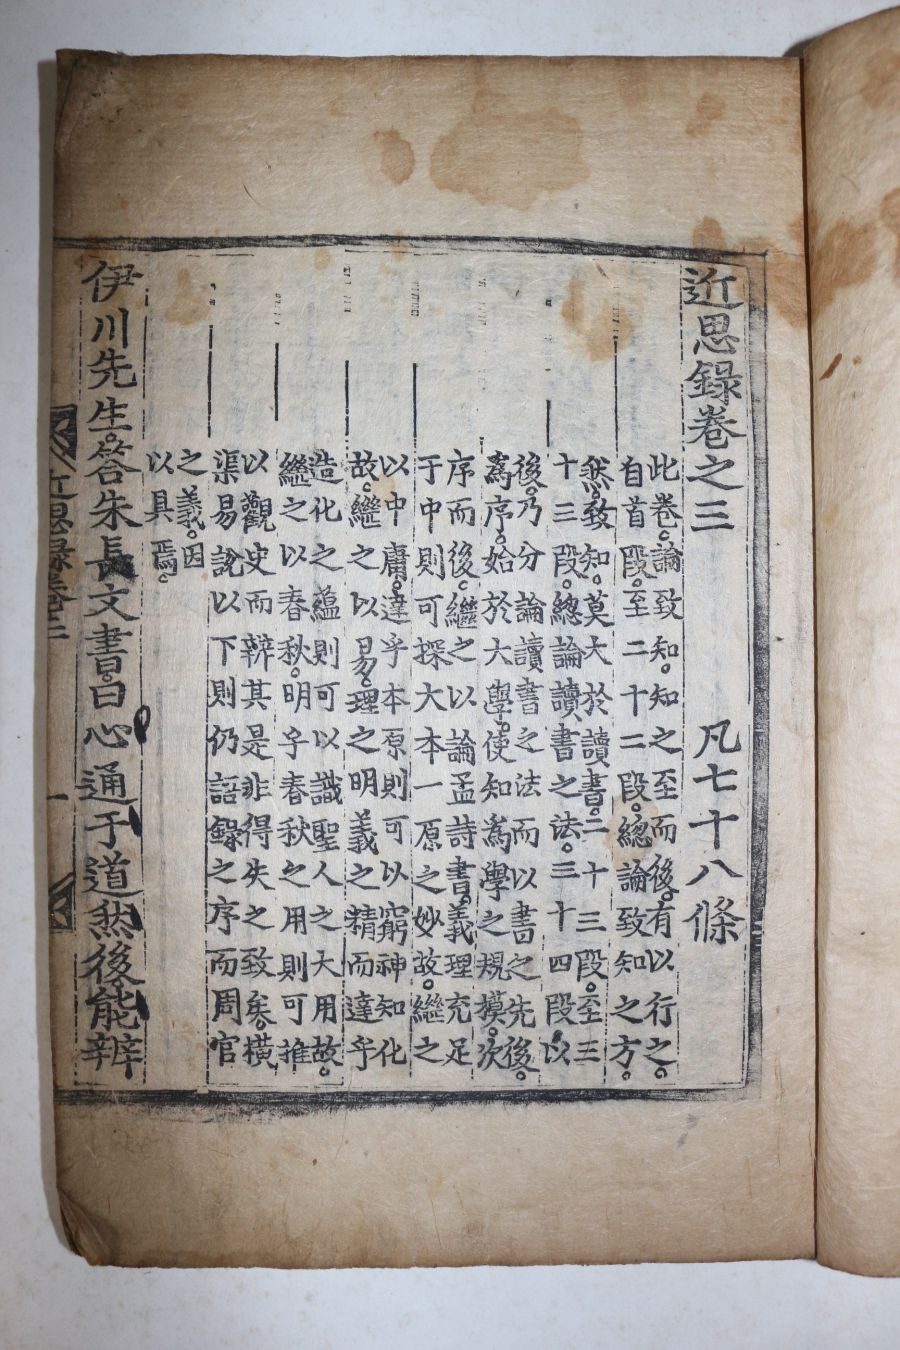 近思錄卷之三 凡七十八條
此卷論致知知之至而後有以行之
自首段至二十二段總論致知之方
然致知莫大於讀書二十三段至三
十三段總論讀書之法三十四段以
後乃分論讀書之法而以書之先後
爲序始於大學使知爲學之規模次
序而後繼之以論孟詩書義理充足
于中則可探大本一原之妙故繼之
以中庸達乎本原則可以窮神知化
故繼之以易理之明義之精而達乎
造化之蘊則可以識聖人之大用故
繼之以春秋明乎春秋之用則可推
以觀史而辨其是非得失之致矣橫
渠易說以下則仍語錄之序而周官
之義因
以具焉
伊川先生答朱長文書曰心通于道然後能辨
近思錄卷三
一